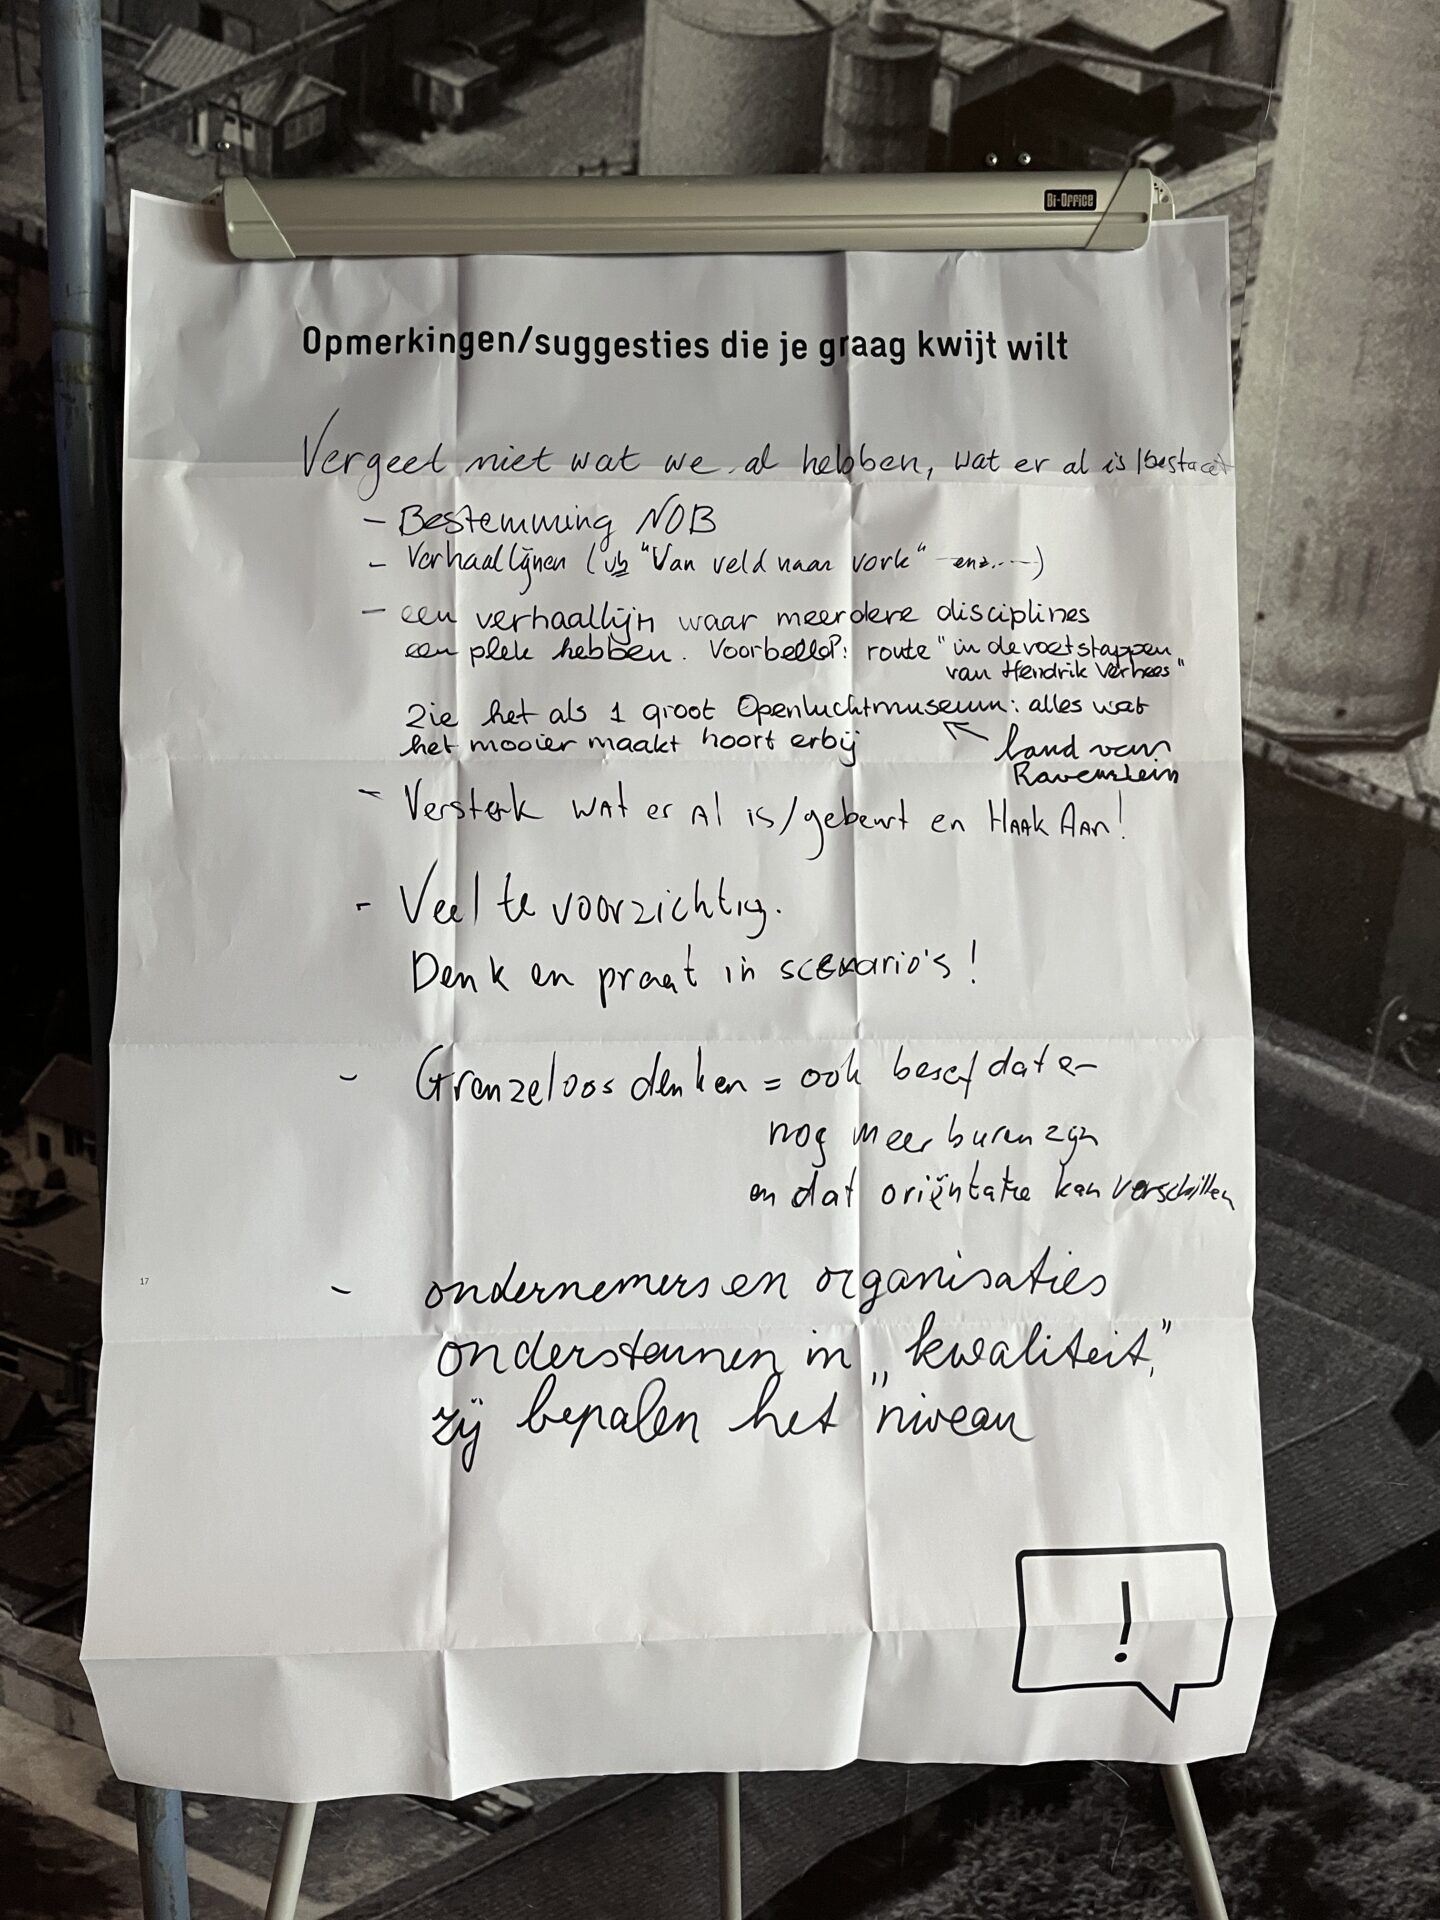 Bi-Office
Opmerkingen/suggesties die je graag kwijt wilt
Vergeet niet wat we al hebben, wat er al is / bestaat
- Bestemming NOB
- Verhaallijnen (vb "Van veld naar vork" enz....)
- een verhaallijn waar meerdere disciplines
een plek hebben. Voorbeeld: route "in de voetstappen
van Hendrik Verhees"
Zie het als 1 groot Openluchtmuseum: alles wat
het mooier maakt hoort erbij
land van
Ravenstein
- Versterk wat er al is/gebeurt en Haak Aan!
- Veel te voorzichtig.
Denk en praat in scenario's!
- Grenzeloos denken = ook besef dat er
nog meer buren zijn
en dat oriëntatie kan verschillen
17
- ondernemers en organisaties
ondersteunen in „kwaliteit,"
zij bepalen het "niveau
!